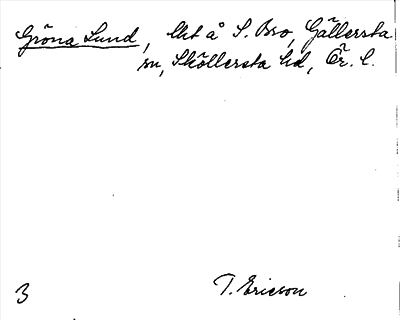 Gröna Lund, lht å S. Bro, Gällersta
sn, Sköllersta hd, Ör. l.
3
T. Ericson